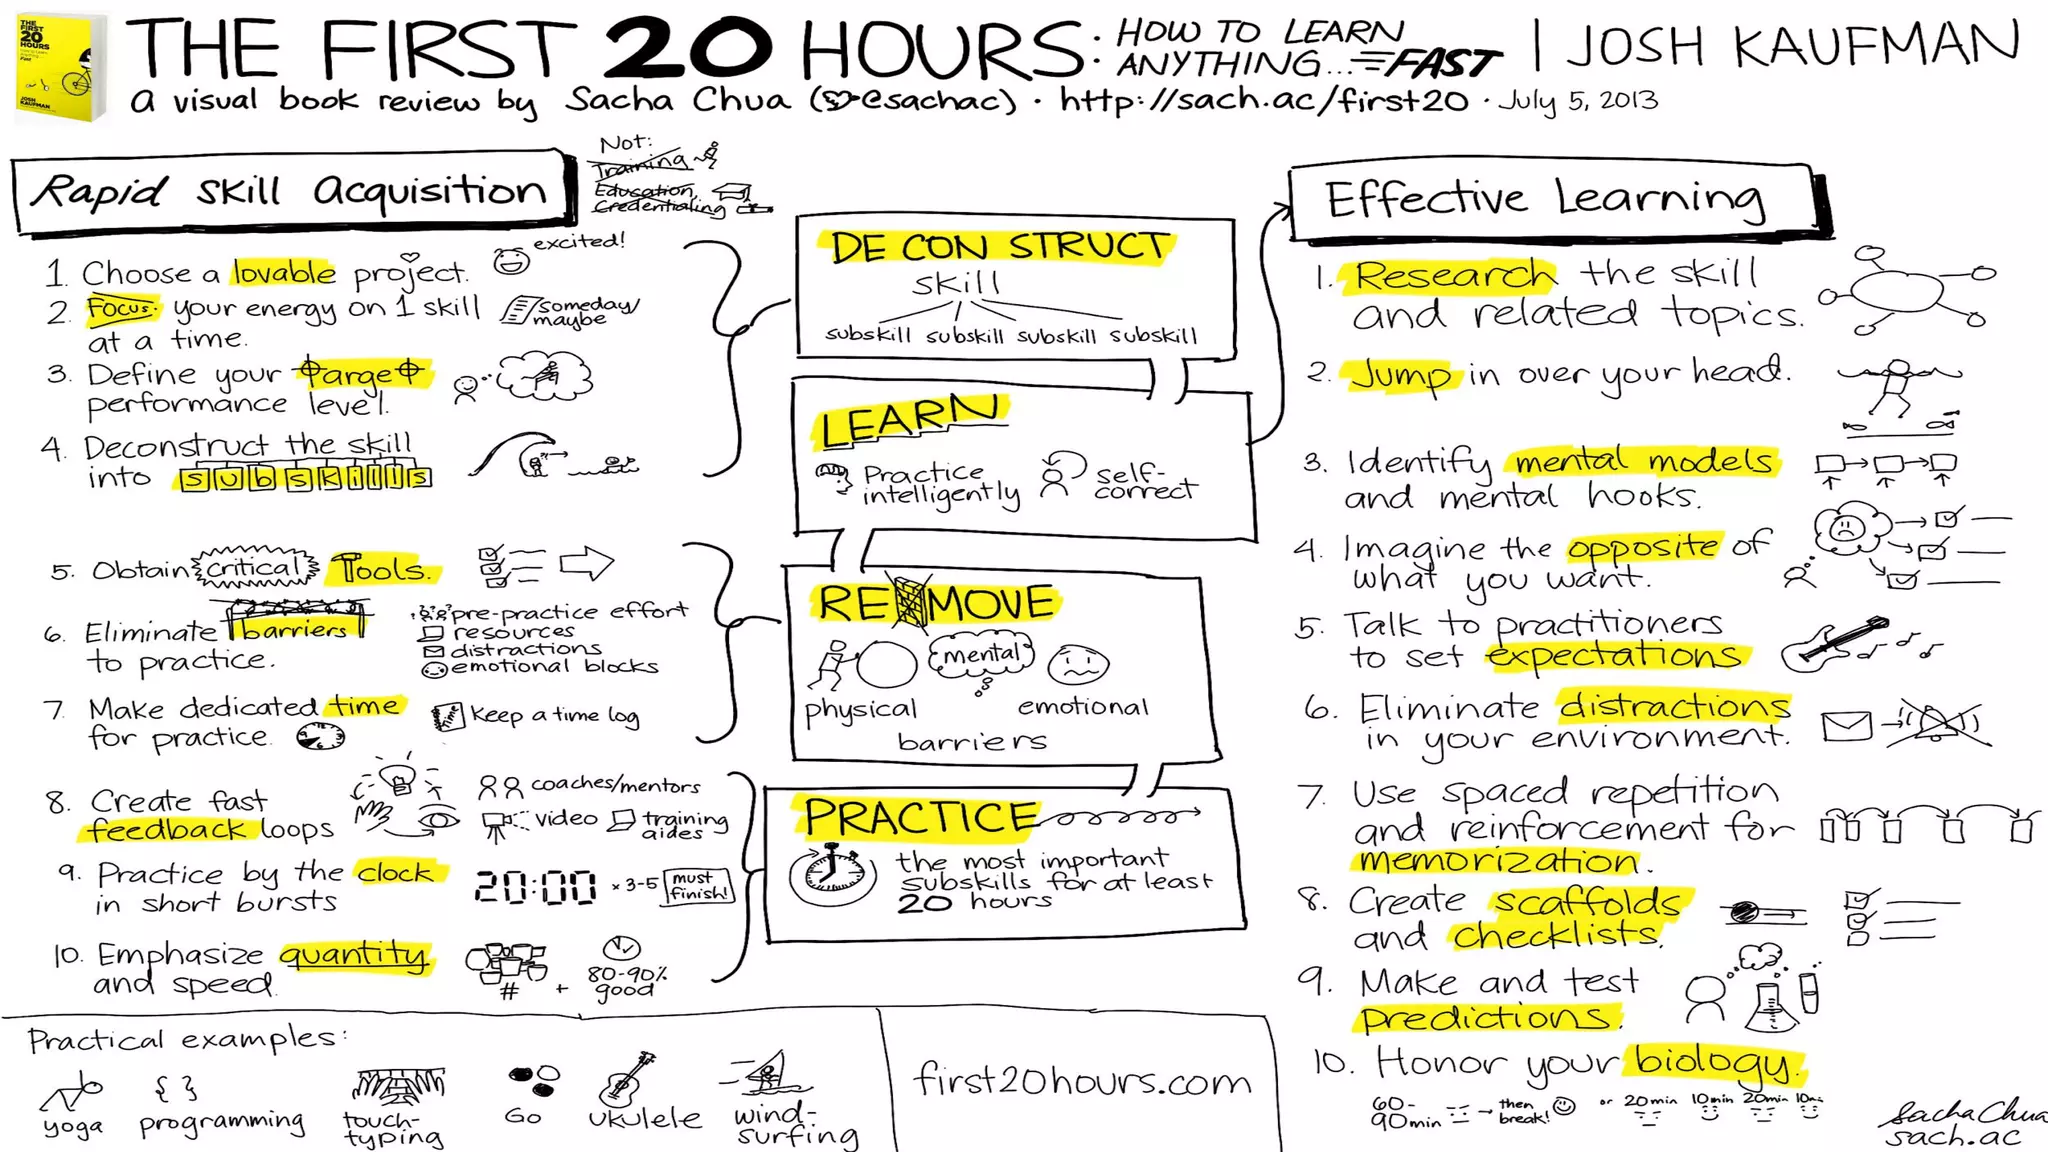 THE FIRST 20 HOURS
JOSH KAUFMAN
THE FIRST 20 HOURS: HOW TO LEARN ANYTHING... FAST | JOSH KAUFMAN
a visual book review by Sacha Chua (@sachac) · http://sach.ac/first20 · July 5, 2013
Rapid Skill Acquisition
Not:
Training
Education,
Credentialing
1. Choose a lovable project.
excited!
2. Focus your energy on 1 skill
at a time.
someday/
maybe
3. Define your target
performance level.
4. Deconstruct the skill
into subskills
5. Obtain critical Tools.
6. Eliminate barriers
to practice.
pre-practice effort
resources
distractions
emotional blocks
7. Make dedicated time
for practice.
Keep a time log
8. Create fast
feedback loops
coaches/mentors
video
training
aides
9. Practice by the clock
in short bursts
20:00 × 3-5 must
finish!
10. Emphasize quantity
and speed.
# +
80-90%
good
DECONSTRUCT
skill
subskill subskill subskill subskill
LEARN
Practice
intelligently
self-
correct
REMOVE
physical
mental
emotional
barriers
PRACTICE
the most important
subskills for at least
20 hours
Effective Learning
1. Research the skill
and related topics.
2. Jump in over your head.
3. Identify mental models
and mental hooks.
4. Imagine the opposite of
what you want.
5. Talk to practitioners
to set expectations
6. Eliminate distractions
in your environment.
7. Use spaced repetition
and reinforcement for
memorization.
8. Create scaffolds
and checklists.
9. Make and test
predictions.
10. Honor your biology.
60-
90min → then
break! or 20min 10min 20min
Practical examples:
yoga
{ }
programming
touch-
typing
Go
ukulele
wind-
surfing
first20hours.com
Sacha Chua
sach.ac